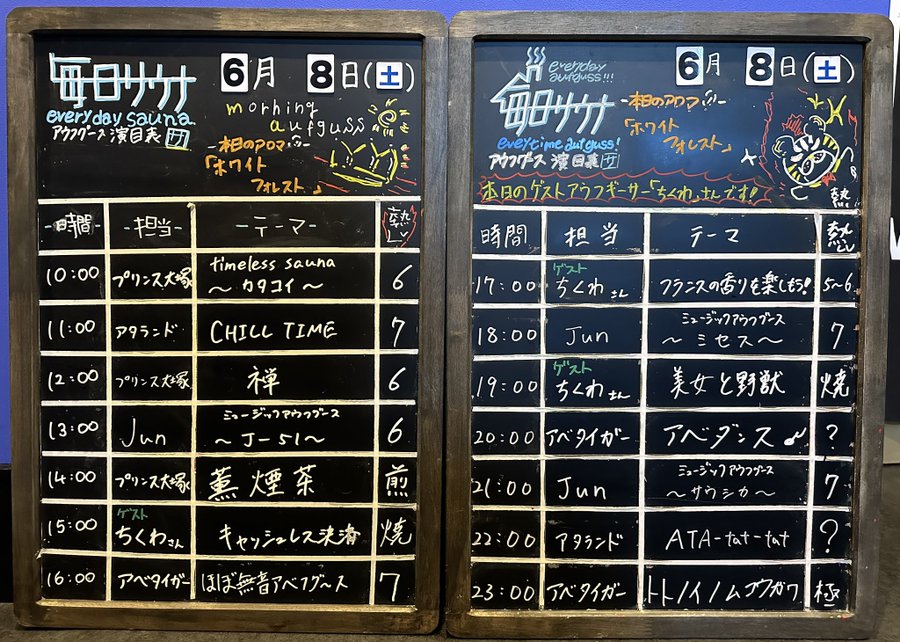 毎日サウナ
6月 8日(土)
everyday sauna
アウフグース 演目表 サ
morning
aufguss
-本日のアロマ-
「ホワイト
フォレスト」
-時間- -担当- -テーマ- 熱
10:00 プリンス大塚 timeless sauna 6
～カタコイ～
11:00 アタランド CHILL TIME 7
12:00 プリンス大塚 禅 6
13:00 Jun ミュージックアウフグース 6
～J-51～
14:00 プリンス大塚 薫煙茶 煎
ゲスト
15:00 ちくわさん キャッシュレス決済 焼
16:00 アベタイガー ほぼ無音アベフグース 7
everyday
aufguss!!!
毎日サウナ
6月 8日(土)
everytime aufguss!
アウフグース 演目表 サ
-本日のアロマ-
「ホワイト
フォレスト」
本日のゲストアウフギーサー「ちくわ」さんです!
時間 担当 テーマ 熱
ゲスト
17:00 ちくわさん フランスの香りを楽しもう! 5～6
18:00 Jun ミュージックアウフグース 7
～ミセス～
ゲスト
19:00 ちくわさん 美女と野獣 焼
20:00 アベタイガー アベダンス♪ ?
21:00 Jun ミュージックアウフグース 7
～サウシカ～
22:00 アタランド ATA-tat-tat ?
23:00 アベタイガー トトノイノムコウガワ 極